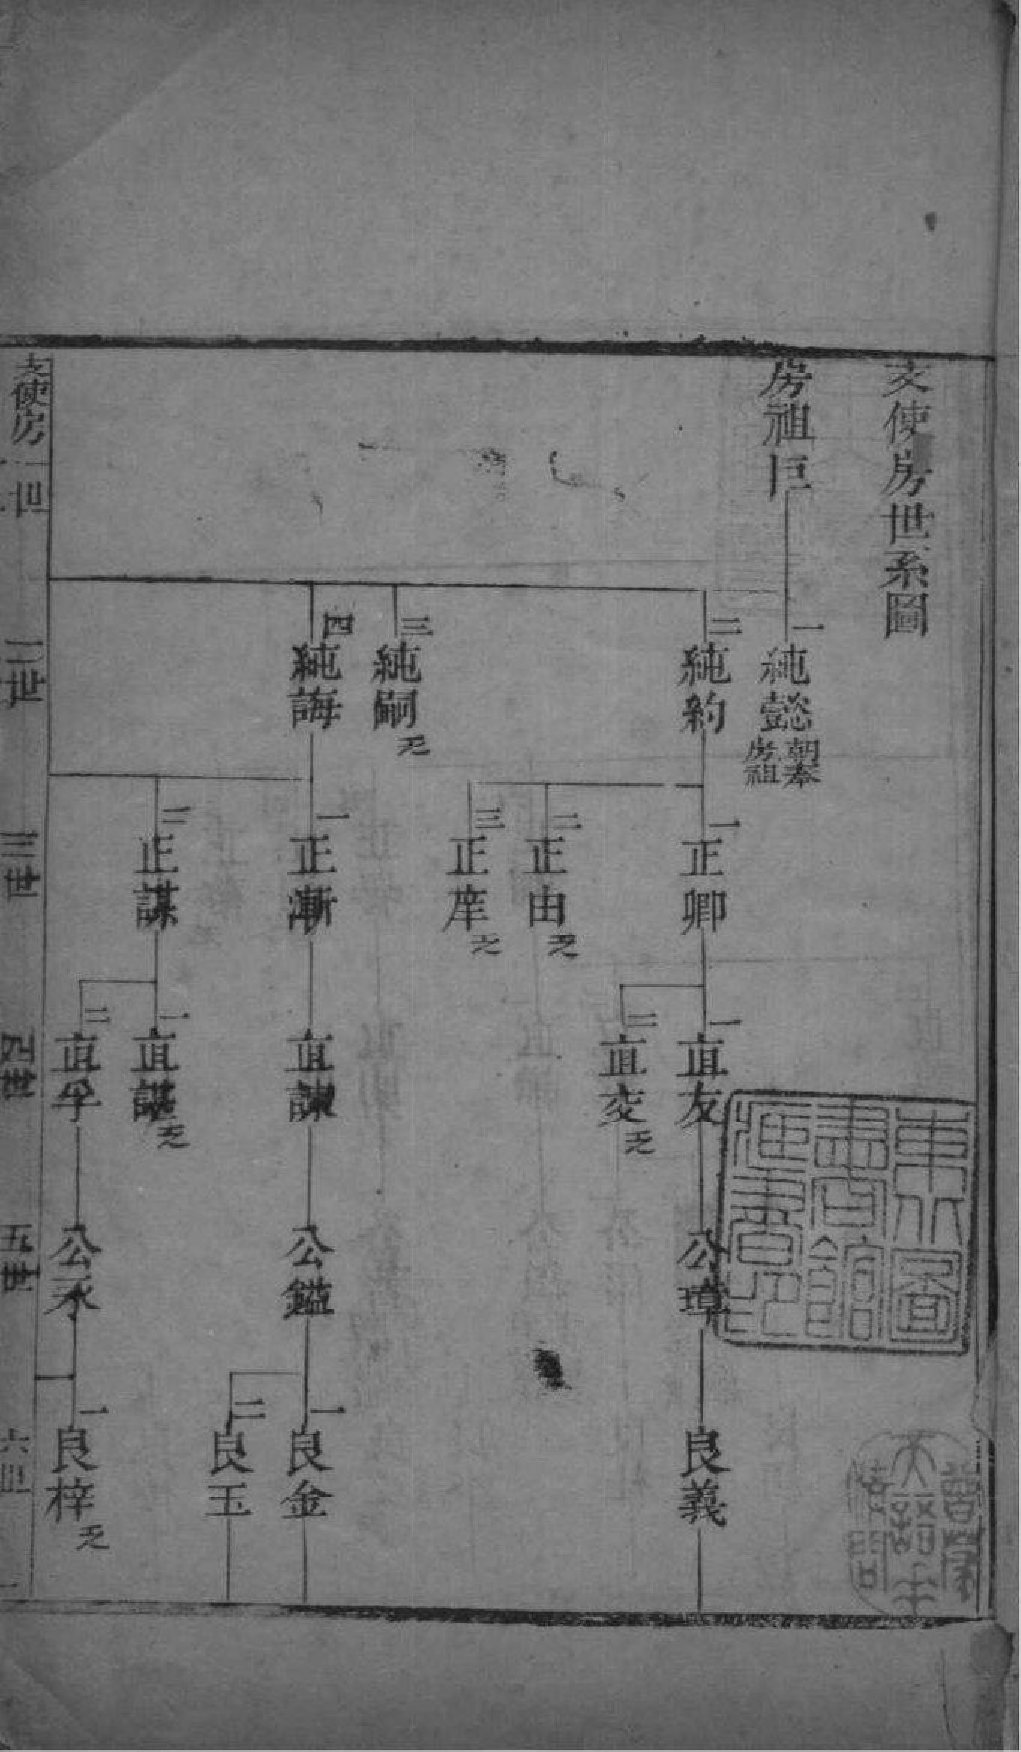 支使房世系圖
房祖巨
一 純懿 朝奉房祖
二 純約
三 純嗣 旡
四 純誨
一 正卿
二 正由 旡
三 正庠 旡
一 正漸
二 正謀
一 直友
二 直交 旡
直諫
一 直諶 旡
二 直孚
公璋
公鎰
公承
良義
一 良金
二 良玉
一 良梓 旡
支使房
一世
二世
三世
四世
五世
六世
東北圖書館所藏書印